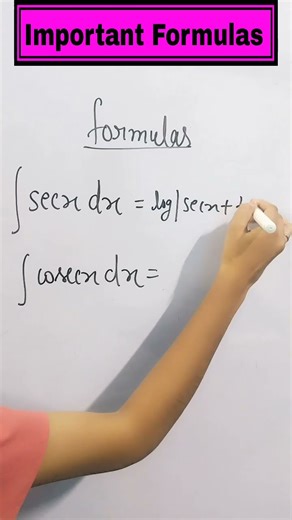 Important Formulas
formulas
∫ secx dx = log|secx+
∫ cosecx dx =